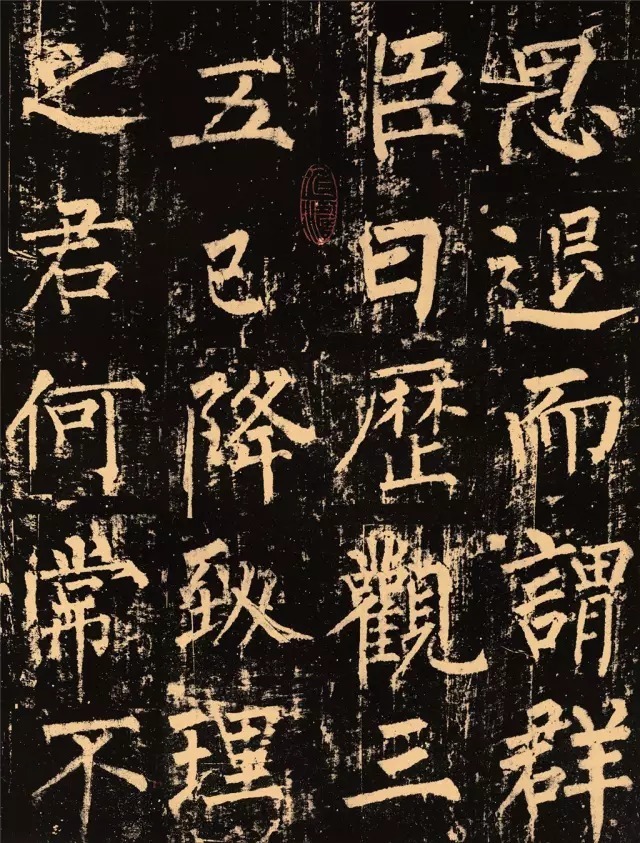 思退而謂群
臣曰歴觀三
五已降致理
之君何常不